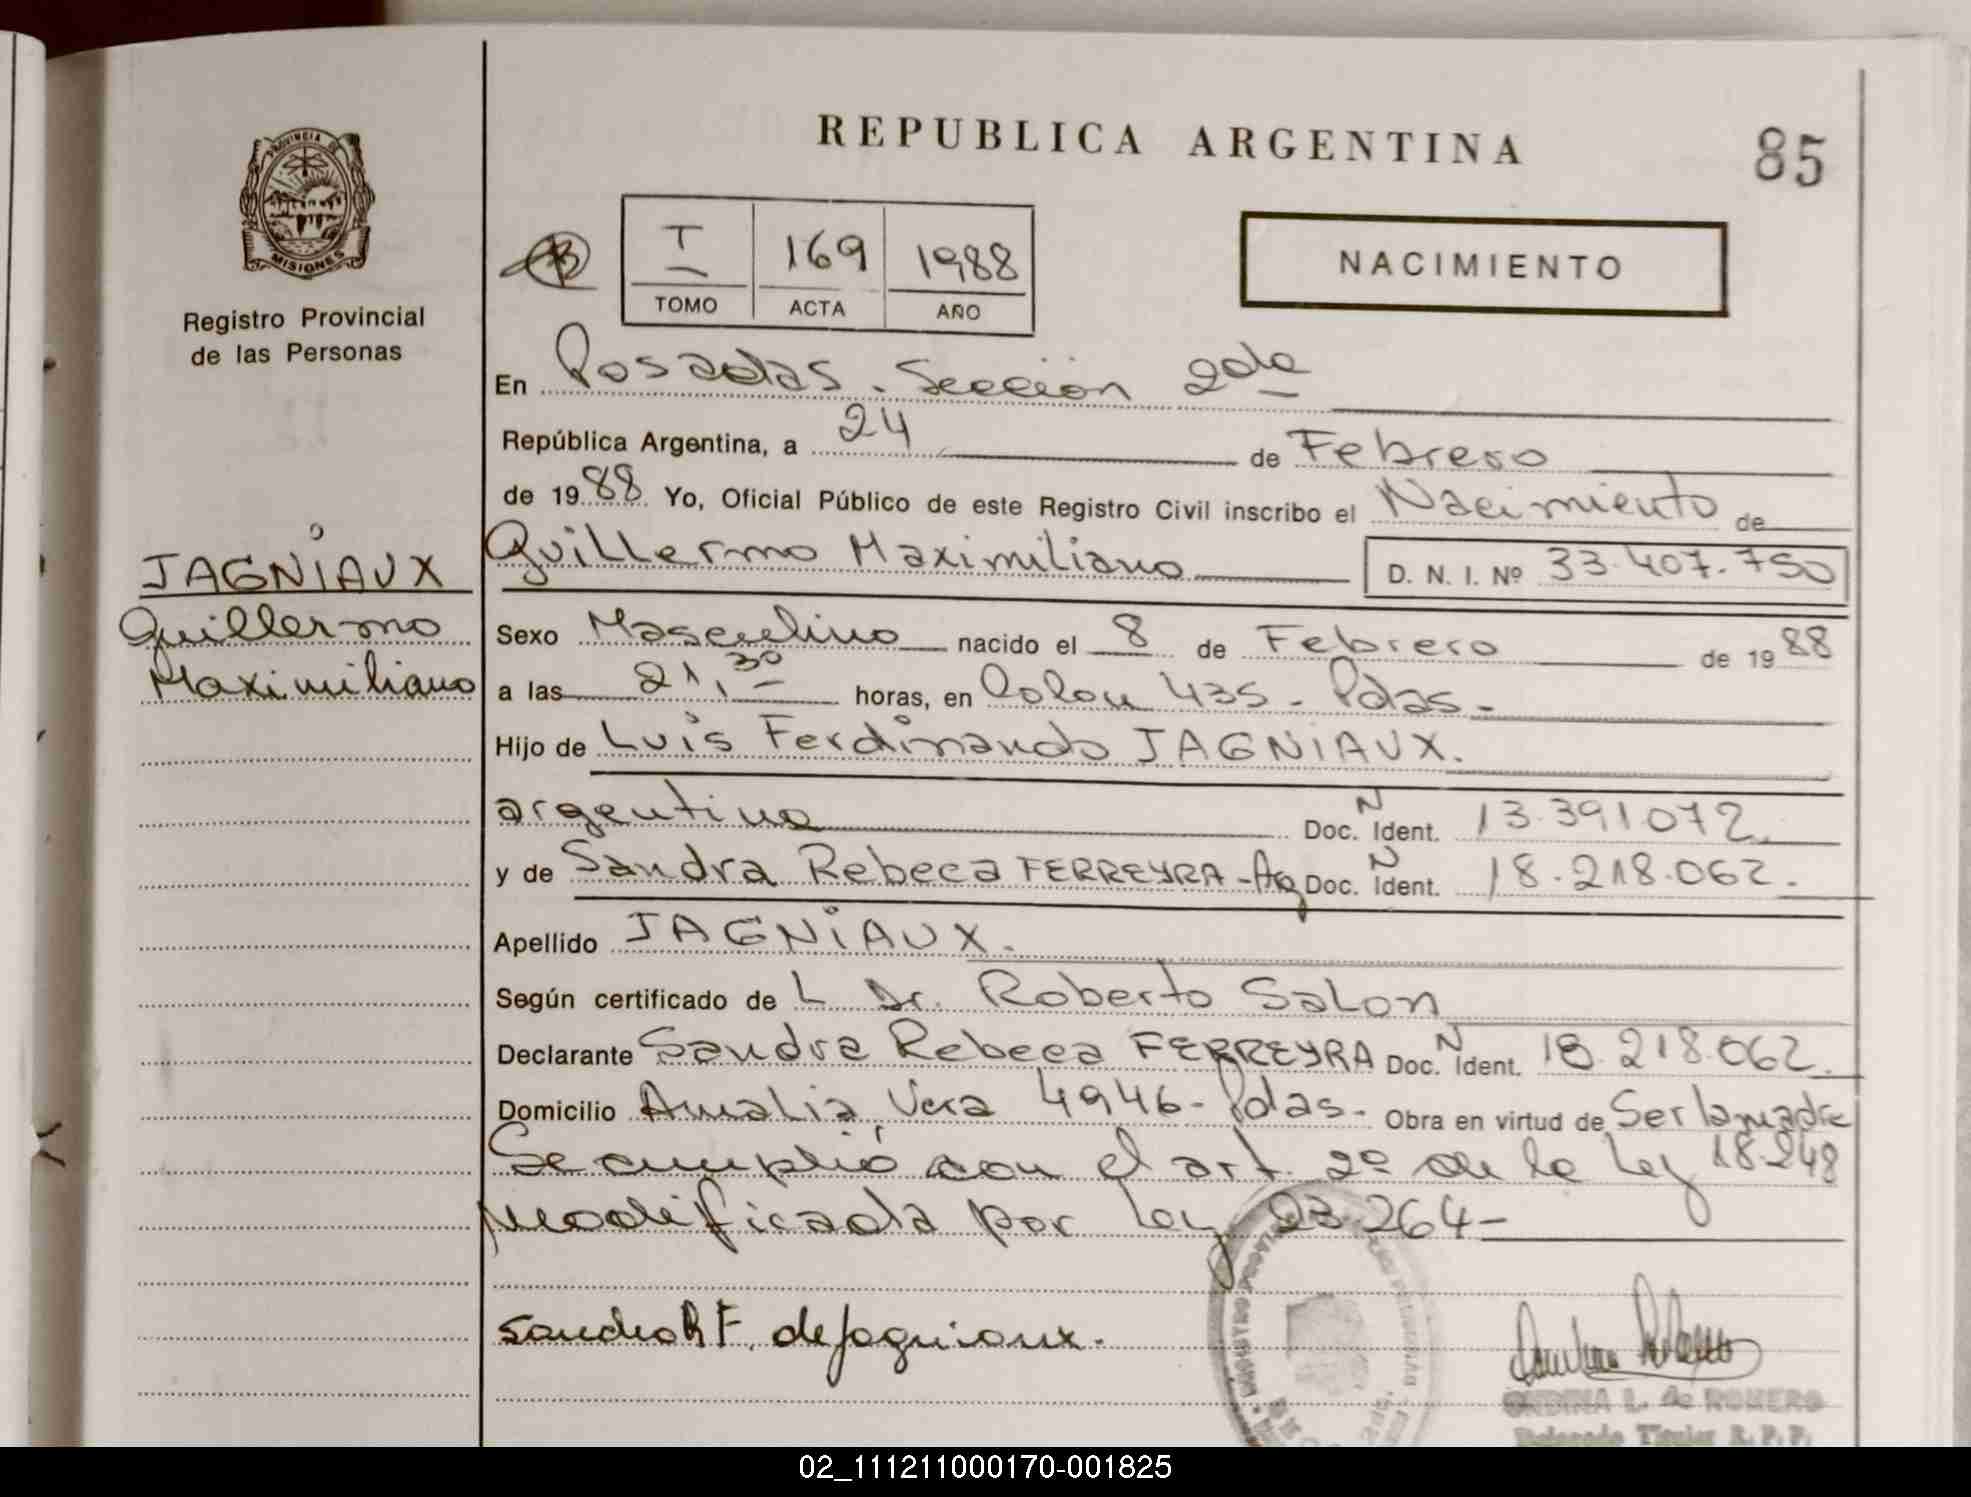 REPUBLICA ARGENTINA
85
PROVINCIA DE
MISIONES
Registro Provincial
de las Personas
I 169 1988
TOMO ACTA AÑO
NACIMIENTO
En Posadas. Sección 2da
República Argentina, a 24 de Febrero
de 1988 Yo, Oficial Público de este Registro Civil inscribo el Nacimiento de
JAGNIAUX
Guillermo
Maximiliano
Guillermo Maximiliano D. N. I. Nº 33.407.750
Sexo Masculino nacido el 8 de Febrero de 1988
a las 21,30 horas, en Colon 435 - Pdas -
Hijo de Luis Ferdinando JAGNIAUX.
argentino Doc. N Ident. 13.391.072
y de Sandra Rebeca FERREYRA - Ag Doc. N Ident. 18.218.062.
Apellido JAGNIAUX.
Según certificado de L Dr. Roberto Salon
Declarante Sandra Rebeca FERREYRA Doc. N Ident. 18.218.062.
Domicilio Amalia Vera 4946 - Pdas - Obra en virtud de Ser la madre
Se cumplió con el art. 2º de la Ley 18.248
modificada por Ley 23.264 -
Sandra R F. de Jagniaux.
ONDINA L. de ROMERO
Delegado Titular R. P. P.
02_111211000170-001825